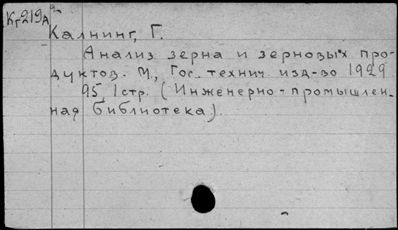 Кг219А
Калнинг, Г.
Анализ зерна и зерновых про-
дуктов. М., Гос. технич. изд-во 1929
95, 1 стр. (Инженерно-промышлен-
ная библиотека).